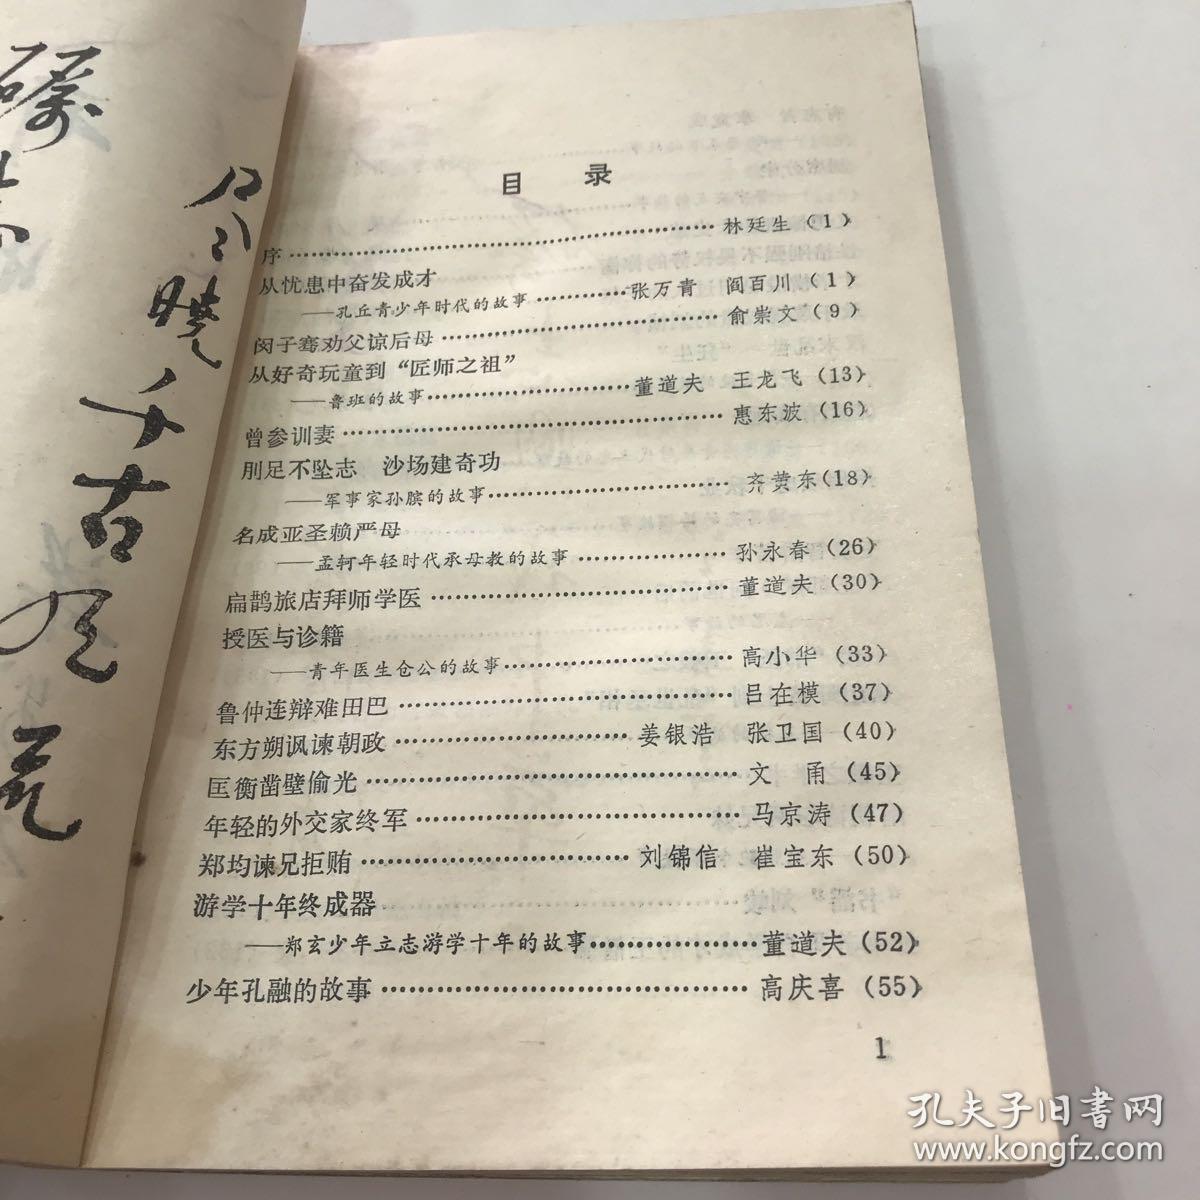 目 录
序……林廷生（1）
从忧患中奋发成才
——孔丘青少年时代的故事……张万青 阎百川（1）
闵子骞劝父谅后母……俞崇文（9）
从好奇玩童到“匠师之祖”
——鲁班的故事……董道夫 王龙飞（13）
曾参训妻……惠东波（16）
刖足不坠志 沙场建奇功
——军事家孙膑的故事……齐黄东（18）
名成亚圣赖严母
——孟轲年轻时代承母教的故事……孙永春（26）
扁鹊旅店拜师学医……董道夫（30）
授医与诊籍
——青年医生仓公的故事……高小华（33）
鲁仲连辩难田巴……吕在模（37）
东方朔讽谏朝政……姜银浩 张卫国（40）
匡衡凿壁偷光……文 甬（45）
年轻的外交家终军……马京涛（47）
郑均谏兄拒贿……刘锦信 崔宝东（50）
游学十年终成器
——郑玄少年立志游学十年的故事……董道夫（52）
少年孔融的故事……高庆喜（55）
1
千古
孔夫子旧书网
www.kongfz.com